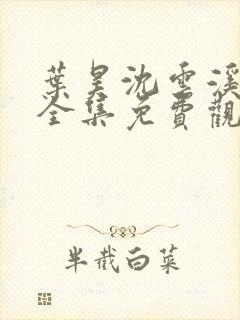 葉昊沈雲溪
全集免費觀
半截白菜